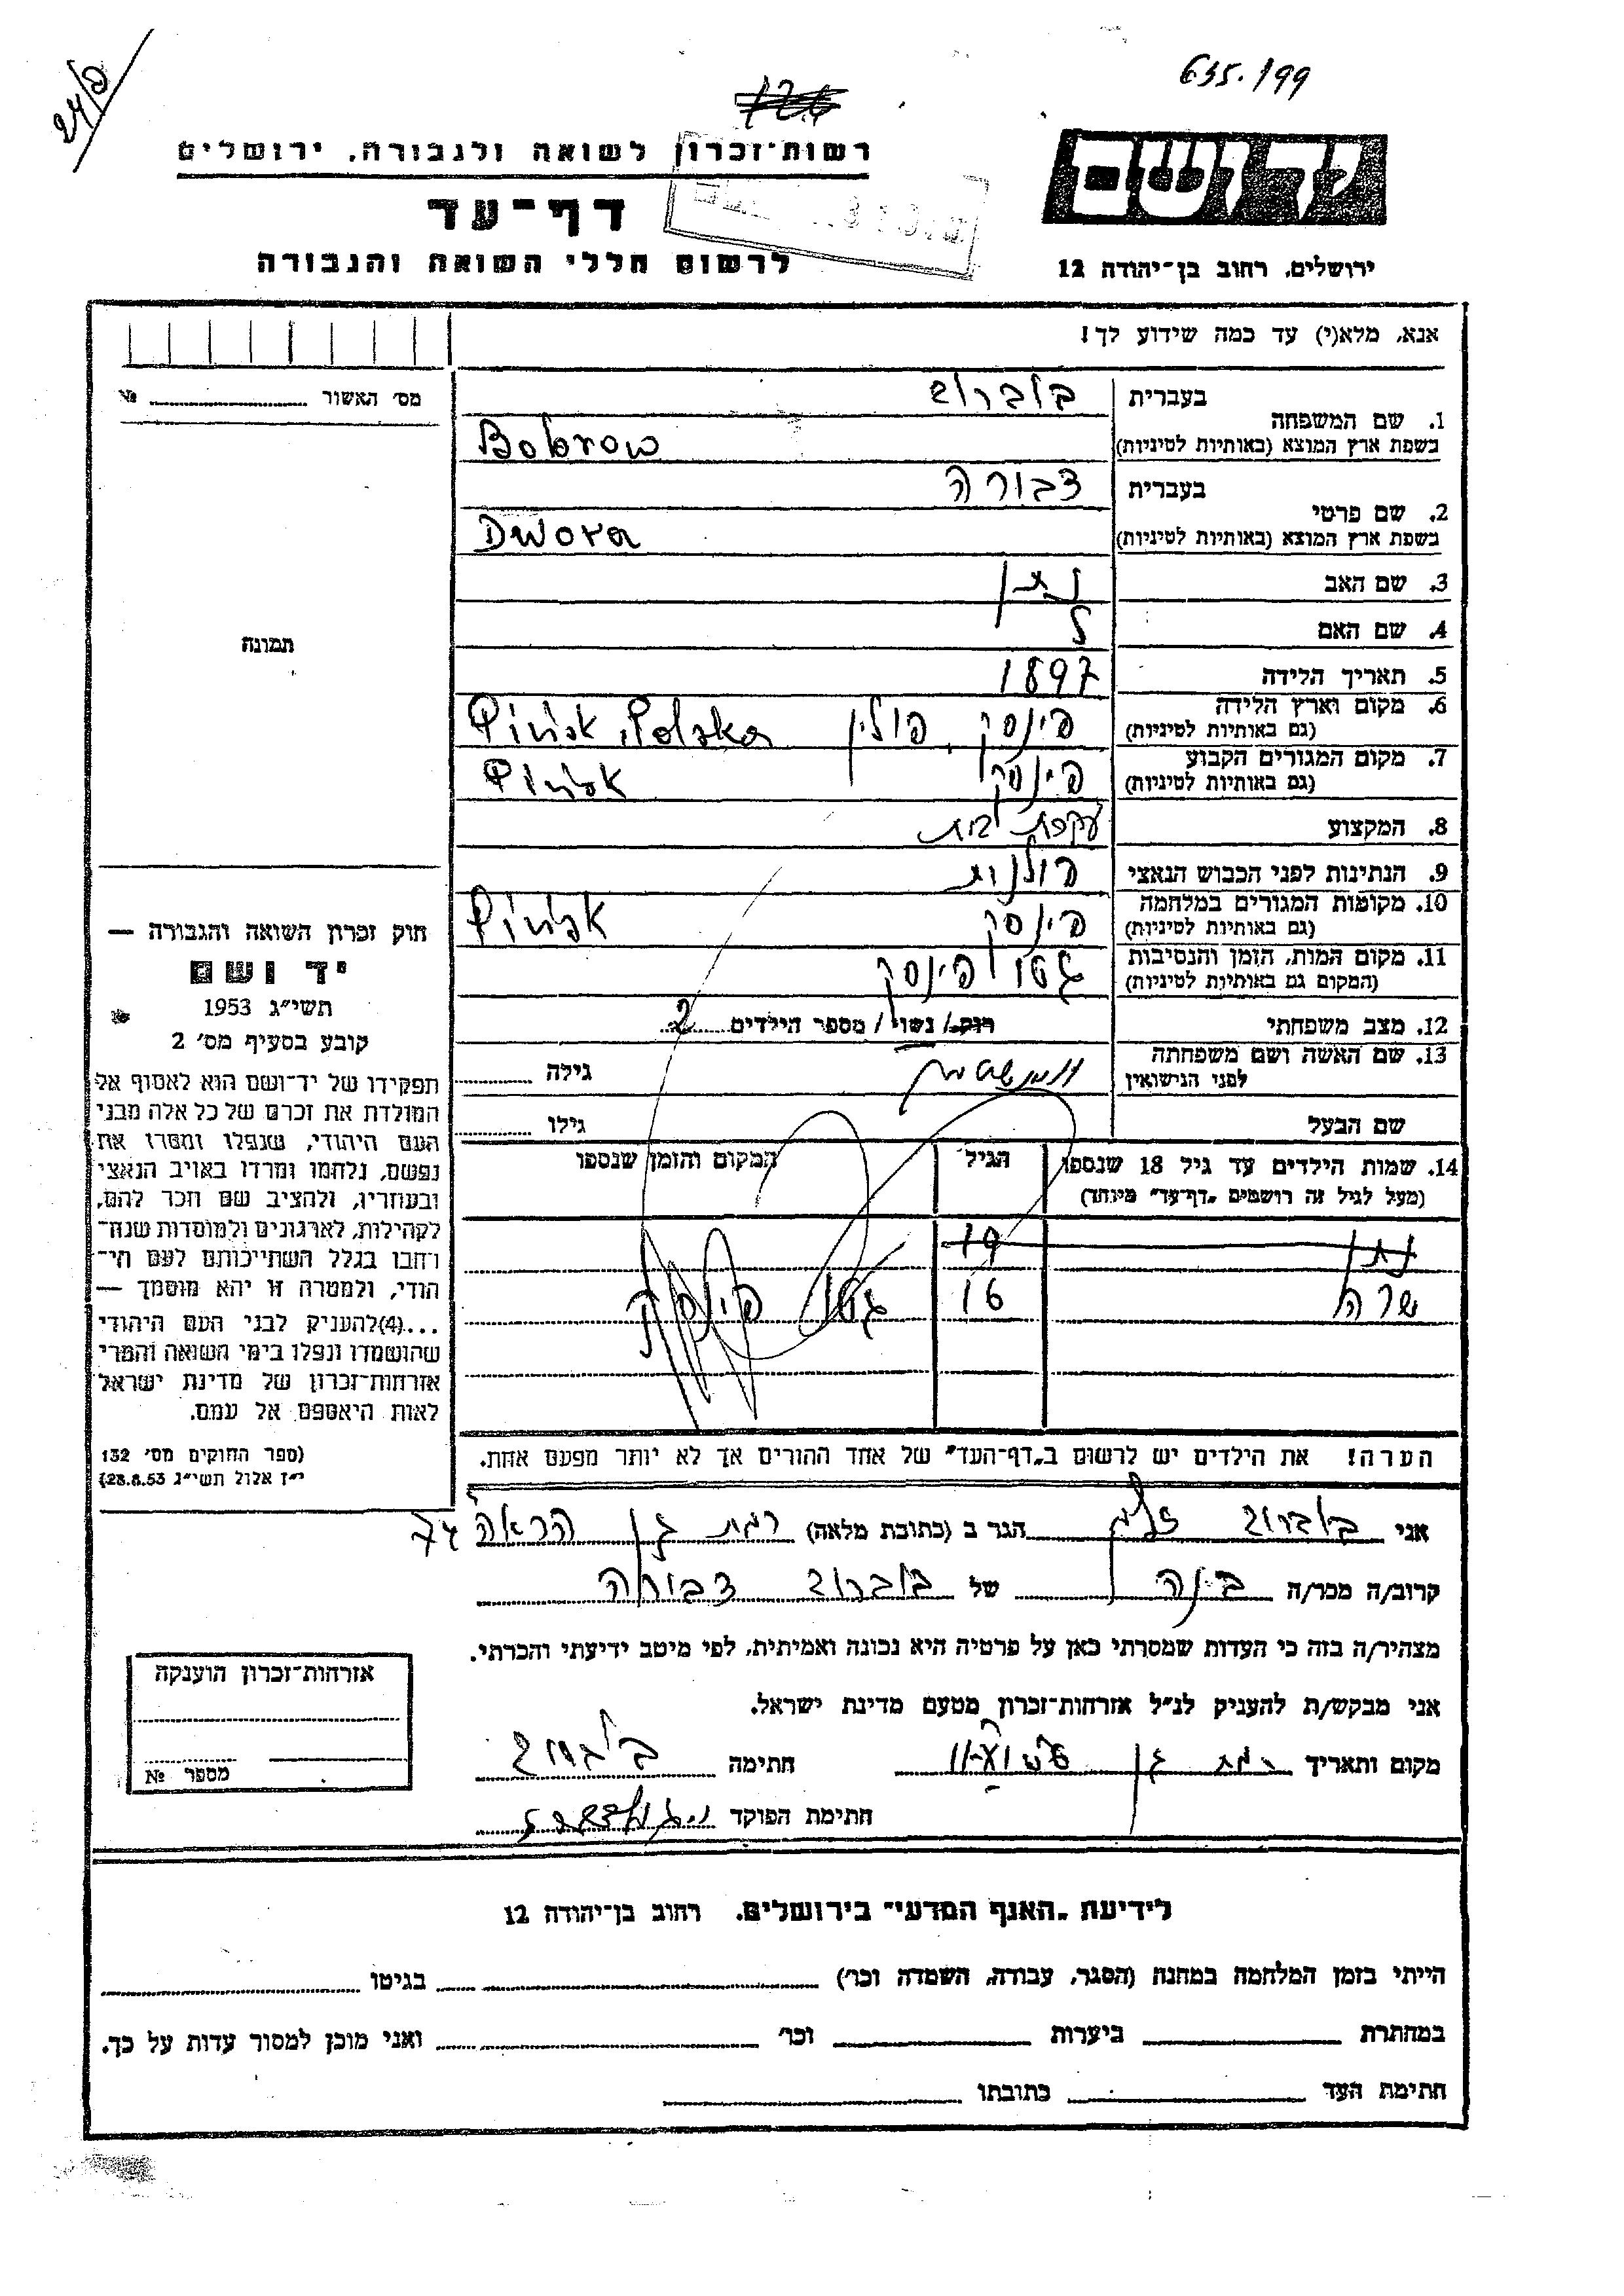 635.199
רשות־זכרון לשואה ולגבורה, ירושלים
דף־עד
לרשום חללי השואה והגבורה
ידושם
ירושלים, רחוב בן־יהודה 12
אנא, מלא(י) עד כמה שידוע לך!
מס׳ האשור № 
בעברית בוברוב
1. שם המשפחה
בשפת ארץ המוצא (באותיות לטיניות) Bobrow
בעברית דבורה
2. שם פרטי
בשפת ארץ המוצא (באותיות לטיניות) Dwora
3. שם האב נתן
4. שם האם
5. תאריך הלידה 1897
6. מקום וארץ הלידה
(גם באותיות לטיניות) פינסק, פולין Pińsk, Polska
7. מקום המגורים הקבוע
(גם באותיות לטיניות) פינסק Pińsk
8. המקצוע עקרת בית
9. הנתינות לפני הכבוש הנאצי פולנית
10. מקומות המגורים במלחמה
(גם באותיות לטיניות) פינסק Pińsk
11. מקום המות, הזמן והנסיבות
(המקום גם באותיות לטיניות) גטו פינסק
12. מצב משפחתי רוק/ נשוי/ מספר הילדים 2
13. שם האשה ושם משפחתה
לפני הנישואין גילה
שם הבעל גילו
14. שמות הילדים עד גיל 18 שנספו הגיל המקום והזמן שנספו
(מעל לגיל זה רושמים „דף־עד״ מיוחד)
נתן 19
שרה 16 גטו פינסק
הערה! את הילדים יש לרשום ב„דף־העד״ של אחד ההורים אך לא יותר מפעם אחת.
תמונה
חוק זכרון השואה והגבורה —
יד ושם
תשי״ג 1953
קובע בסעיף מס׳ 2
תפקידו של יד־ושם הוא לאסוף אל
המולדת את זכרם של כל אלה מבני
העם היהודי, שנפלו ומסרו את
נפשם, נלחמו ומרדו באויב הנאצי
ובעוזריו, ולהציב שם וזכר להם,
לקהילות, לארגונים ולמוסדות שנח־
רחבו בגלל השתייכותם לעם הי־
הודי, ולמטרה זו יהא מוסמך —
...(4)להעניק לבני העם היהודי
שהושמדו ונפלו בימי השואה והמרי
אזרחות־זכרון של מדינת ישראל
לאות היאספם אל עמם.
(ספר החוקים מס׳ 132
י״ז אלול תשי״ג 28.8.53)
אני בוברוב זליג הגר ב (כתובת מלאה) רמת גן הראה 74
קרוב/ה מכר/ה בינה של בוברוב דבורה
מצהיר/ה בזה כי העדות שמסרתי כאן על פרטיה היא נכונה ואמיתית, לפי מיטב ידיעתי והכרתי.
אני מבקש/ת להעניק לנ״ל אזרחות־זכרון מטעם מדינת ישראל.
מקום ותאריך רמת גן חתימה בוברוב
חתימת הפוקד
אזרחות־זכרון הוענקה
מספר №
לידיעת „האגף המדעי״ בירושלים, רחוב בן־יהודה 12
הייתי בזמן המלחמה במחנה (הסגר, עבודה, השמדה וכר׳) בגיטו
במחתרת ביערות וכר׳ ואני מוכן למסור עדות על כך.
חתימת העד כתובתו